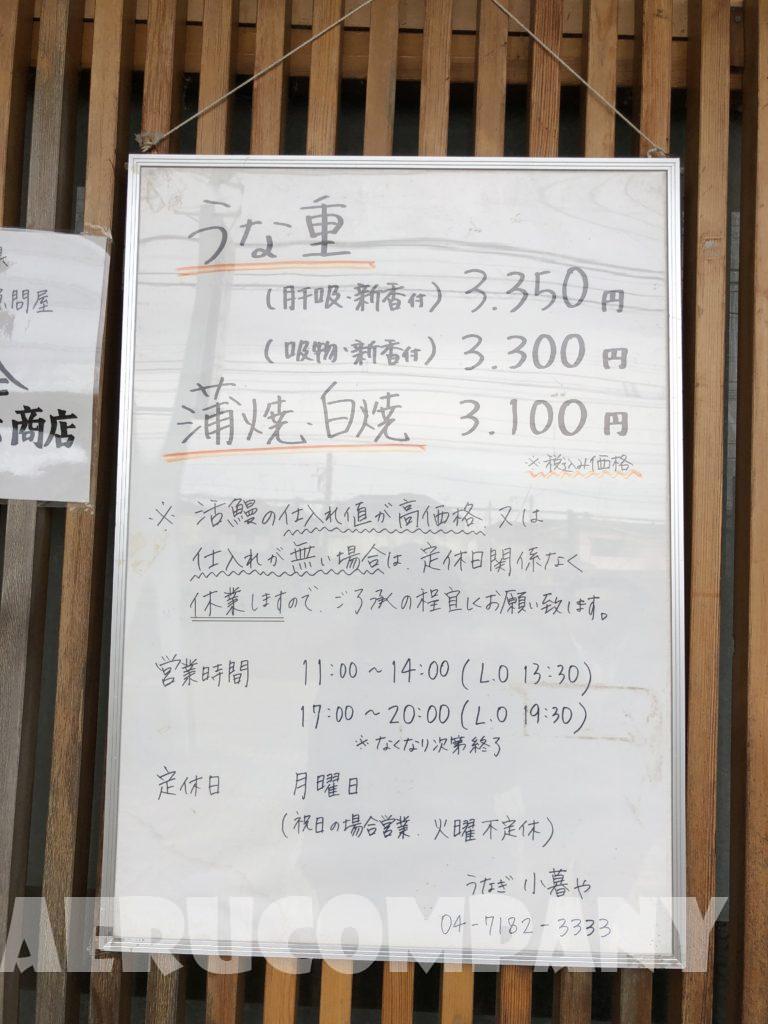 うな重
(肝吸・新香付) 3.350円
(吸物・新香付) 3.300円
蒲焼・白焼 3.100円
※税込み価格
※ 活鰻の仕入れ値が高価格、又は
仕入れが無い場合は、定休日関係なく
休業しますので、ご了承の程宜しくお願い致します。
営業時間 11:00～14:00 (L.O 13:30)
17:00～20:00 (L.O 19:30)
※なくなり次第終了
定休日 月曜日
(祝日の場合営業、火曜不定休)
うなぎ 小暮や
04-7182-3333
問屋
商店
AERUCOMPANY